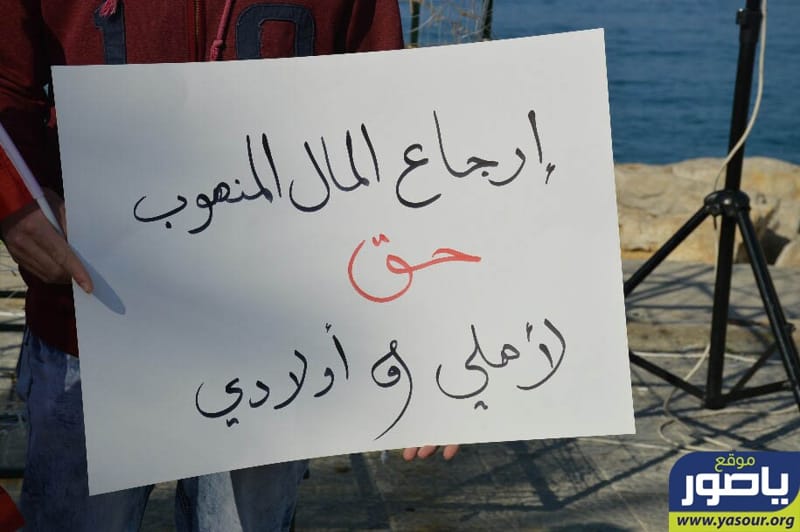 10
إرجاع المال المنهوب
حق
لأهلي و أولادي
موقع
ياصور
www.yasour.org